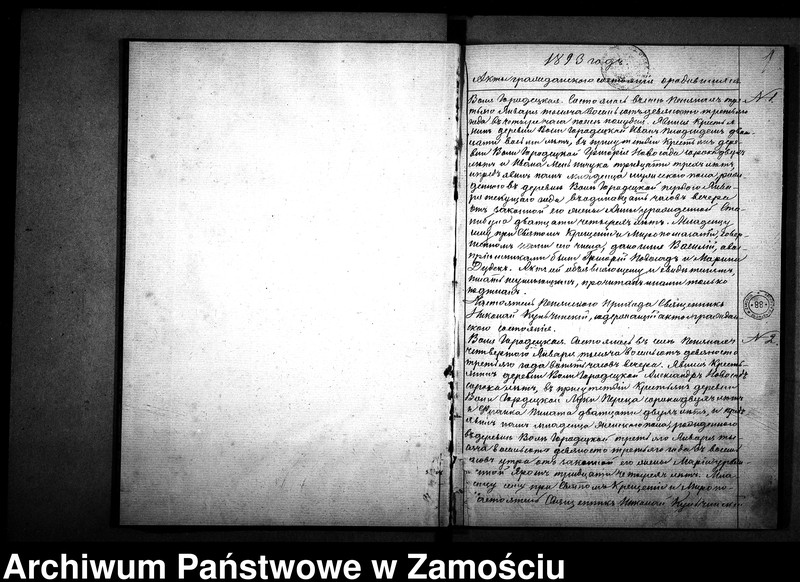 1893 годъ.
1
Акты гражданскаго состоянія о родившихся
Воля Городецкая. Состоялось въ селѣ Потылычѣ
№ 1.
Января тысяча восемьсотъ девяносто третьяго
года въ четыре часа полудни. Явился Крестья
нинъ деревни Воли Городецкой Иванъ два
лѣтъ, въ присутствіи Крестьянъ дере
вни Воли Городецкой Григорія Новосада сорока двухъ
лѣтъ и Ивана тридцати трехъ лѣтъ
и предъявилъ намъ младенца мужескаго пола, рож
деннаго въ деревнѣ Воли Городецкой перваго Янва
ря текущаго года въ одинадцать часовъ вечера
отъ законной его жены Анны урожденной
двадцати четырехъ лѣтъ. Младенцу
сему при Святомъ Крещеніи и Мѵропомазаніи, совер
шенномъ сего числа, дано имя Василій, а вос
пріемниками были Григорій Новосадъ и Марина
Дудекъ. Актъ сей объявляющему и свидѣтелямъ,
писать неумѣющимъ, прочитанъ нами только
подписанъ.
Настоятель Прихода Священникъ
Николай содержащій акты граждан
скаго состоянія.
Воля Городецкая. Состоялось въ селѣ
№ 2.
четвертаго Января тысяча восемьсотъ девяносто
третьяго года въ пять часовъ вечера. Явился Кресть
янинъ деревни Воли Городецкой Александръ Новосадъ
сорока лѣтъ, въ присутствіи Крестьянъ деревни
Воли Городецкой Луки сорока двухъ лѣтъ
и двадцати двухъ лѣтъ, и предъ
явилъ намъ младенца женскаго пола, рожденнаго
въ деревнѣ Воли Городецкой третьяго Января ты
сяча восемьсотъ девяносто третьяго года въ восемь
часовъ утра отъ законной его жены Маріи урожден
ной тридцати четырехъ лѣтъ. Мла
денцу сему при Святомъ Крещеніи и Мѵропо
Настоятель Священникъ Николай
88
Archiwum Państwowe w Zamościu